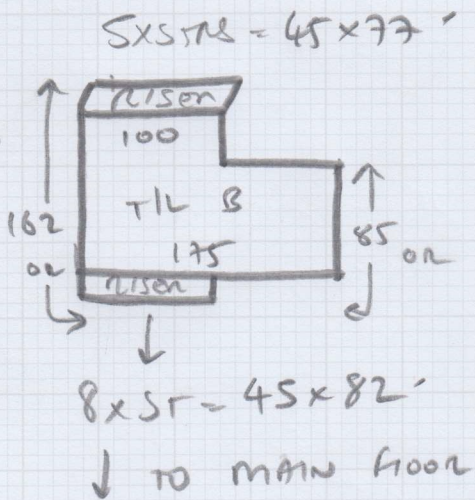 5xSTRS = 45x77'
RISER
100
T/L B
162
OR
175
85
OR
RISER
8xST = 45x82'
TO MAIN FLOOR